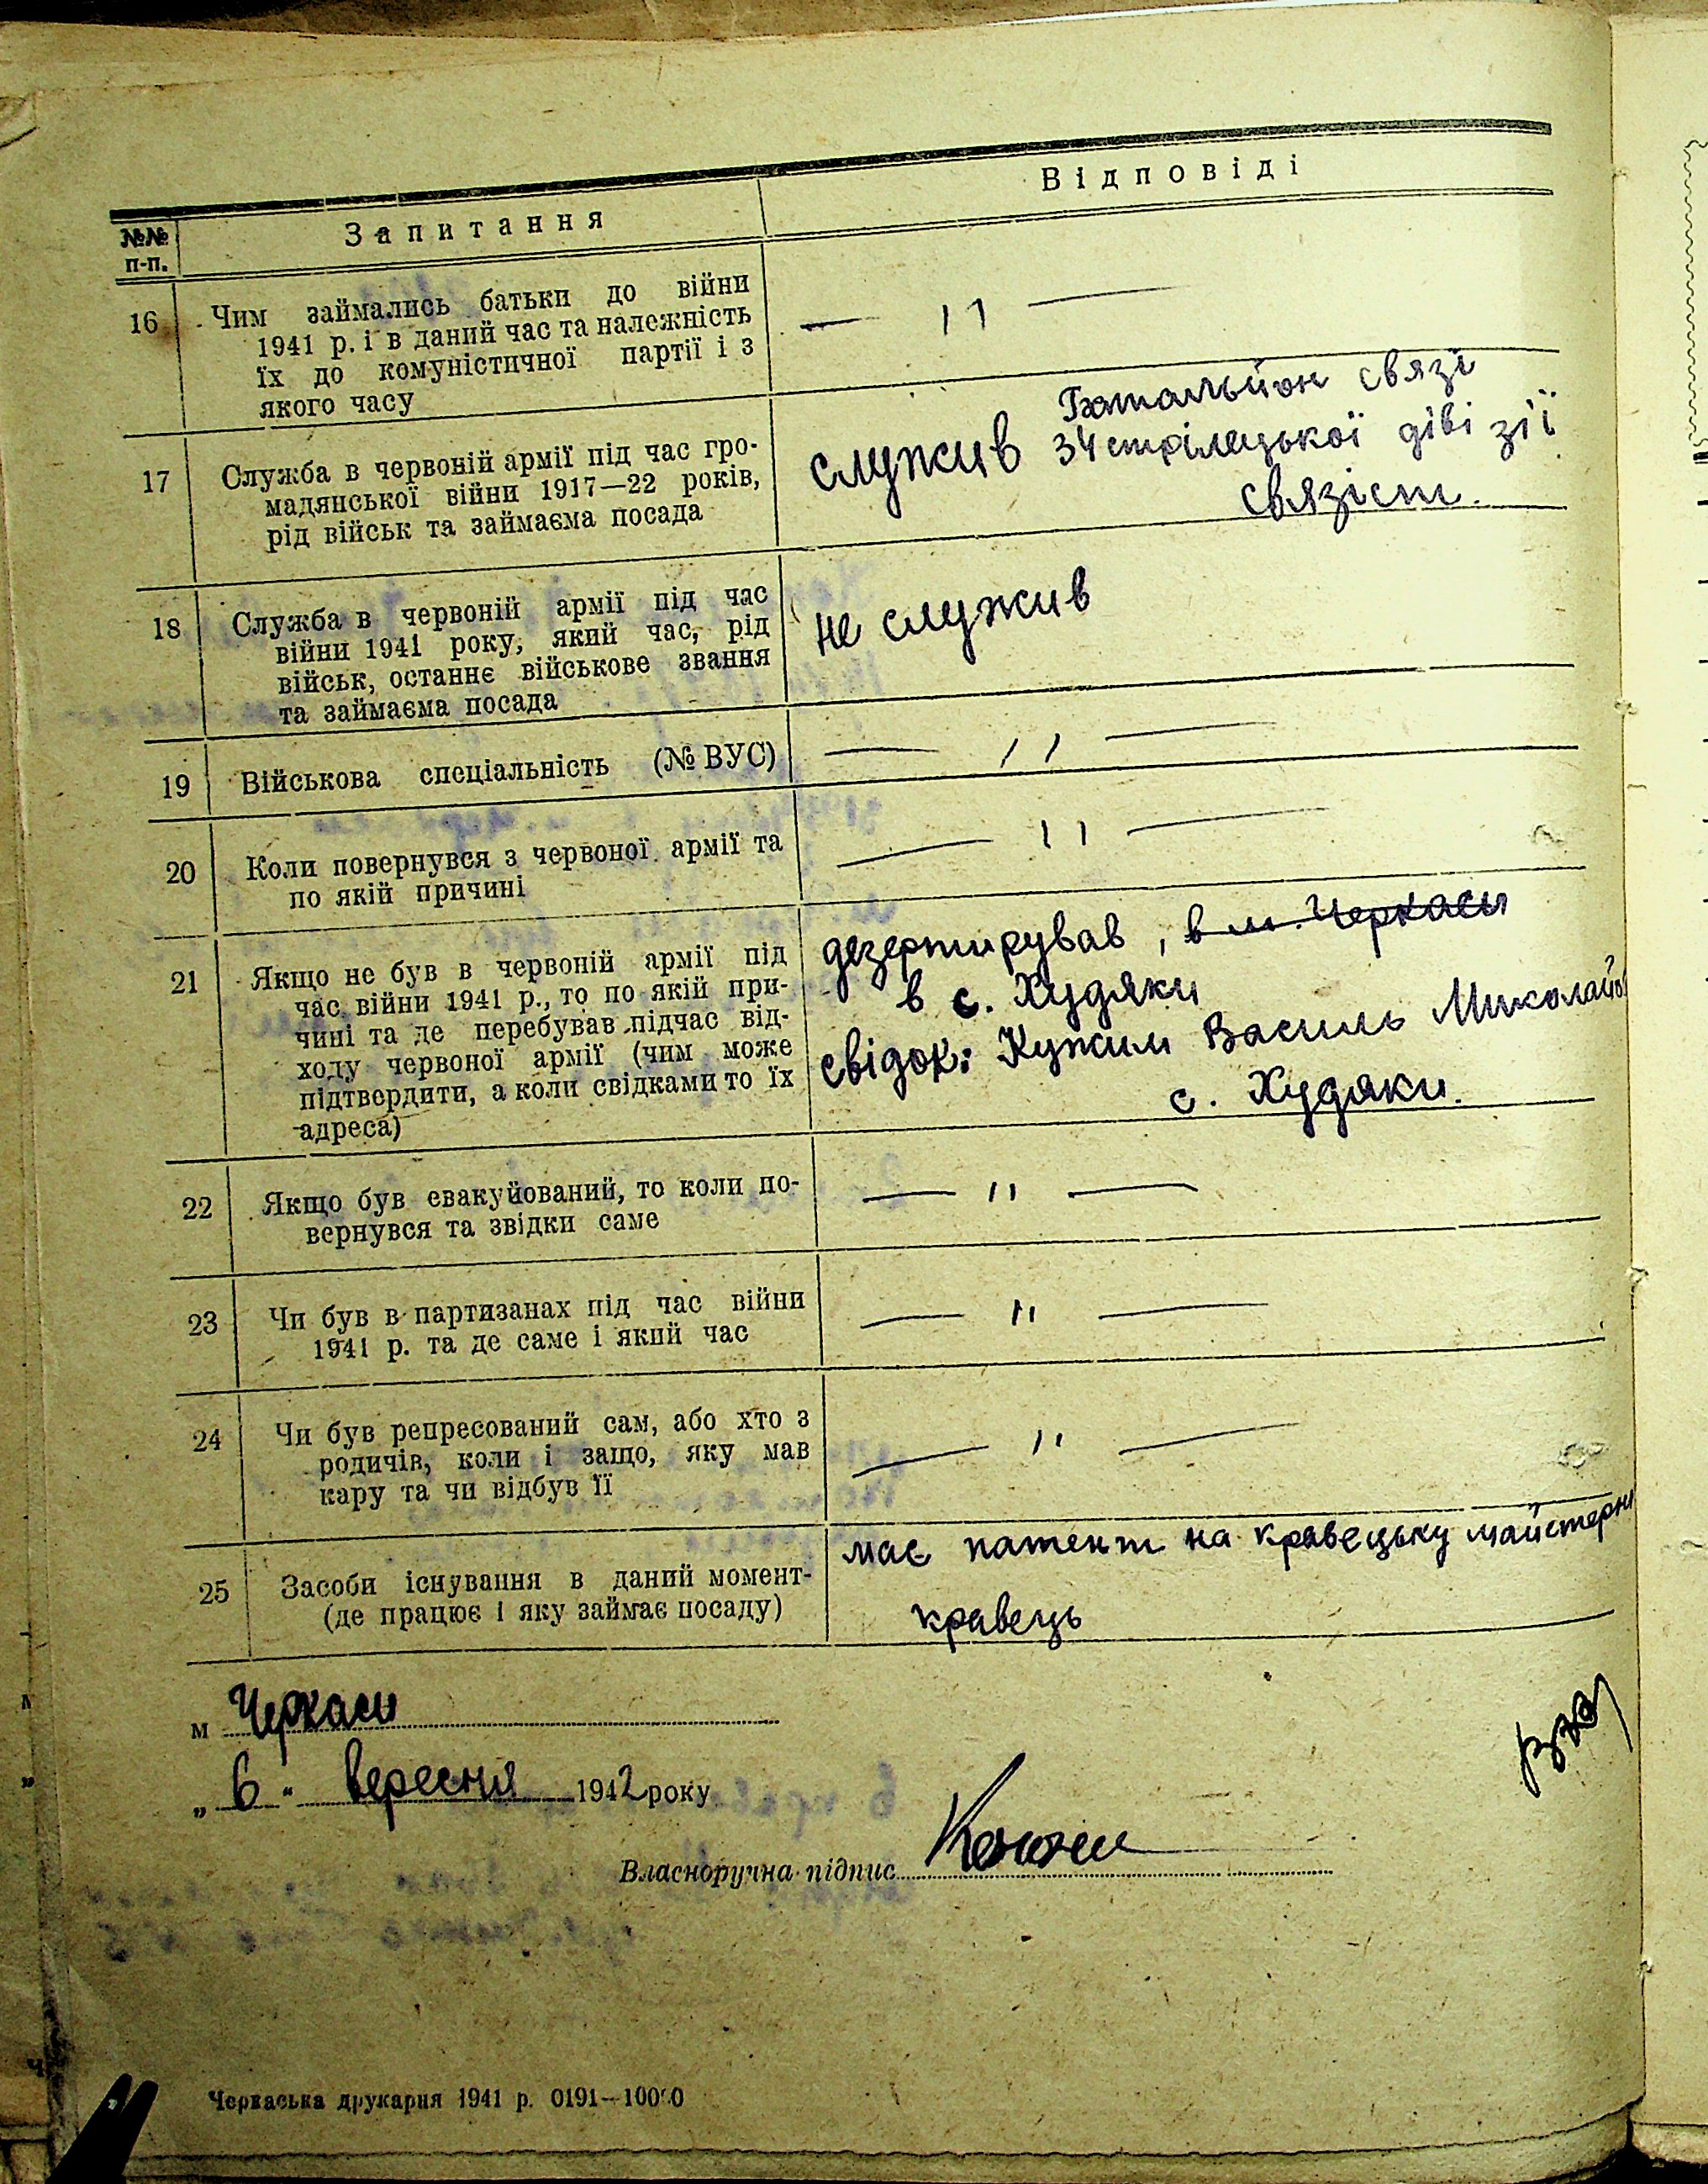 №№ п-п.
Запитання
Відповіді
16 Чим займались батьки до війни
1941 р. і в даний час та належність
їх до комуністичної партії і з
якого часу
— 11 —
17 Служба в червоній армії під час гро-
мадянської війни 1917—22 років,
рід військ та займаєма посада
Батальйон связі
служив 34 стрілецької діві зії
связіст.
18 Служба в червоній армії під час
війни 1941 року, який час, рід
військ, останнє військове звання
та займаєма посада
не служив
19 Військова спеціальність (№ ВУС)
— 11 —
20 Коли повернувся з червоної армії та
по якій причині
— 11 —
21 Якщо не був в червоній армії під
час війни 1941 р., то по якій при-
чині та де перебував підчас від-
ходу червоної армії (чим може
підтвердити, а коли свідками то їх
адреса)
дезертирував, в м. Черкаси
в с. Худяки
свідок: Кужим Василь Миколайов
с. Худяки.
22 Якщо був евакуйований, то коли по-
вернувся та звідки саме
— " —
23 Чи був в партизанах під час війни
1941 р. та де саме і який час
— " —
24 Чи був репресований сам, або хто з
родичів, коли і защо, яку мав
кару та чи відбув її
— " —
25 Засоби існування в даний момент-
(де працює і яку займає посаду)
має патент на кравецьку майстерн
кравець
м Черкаси
„ 6 " вересня 1942 року
Власноручна підпис
Черкаська друкарня 1941 р. 0191—10000